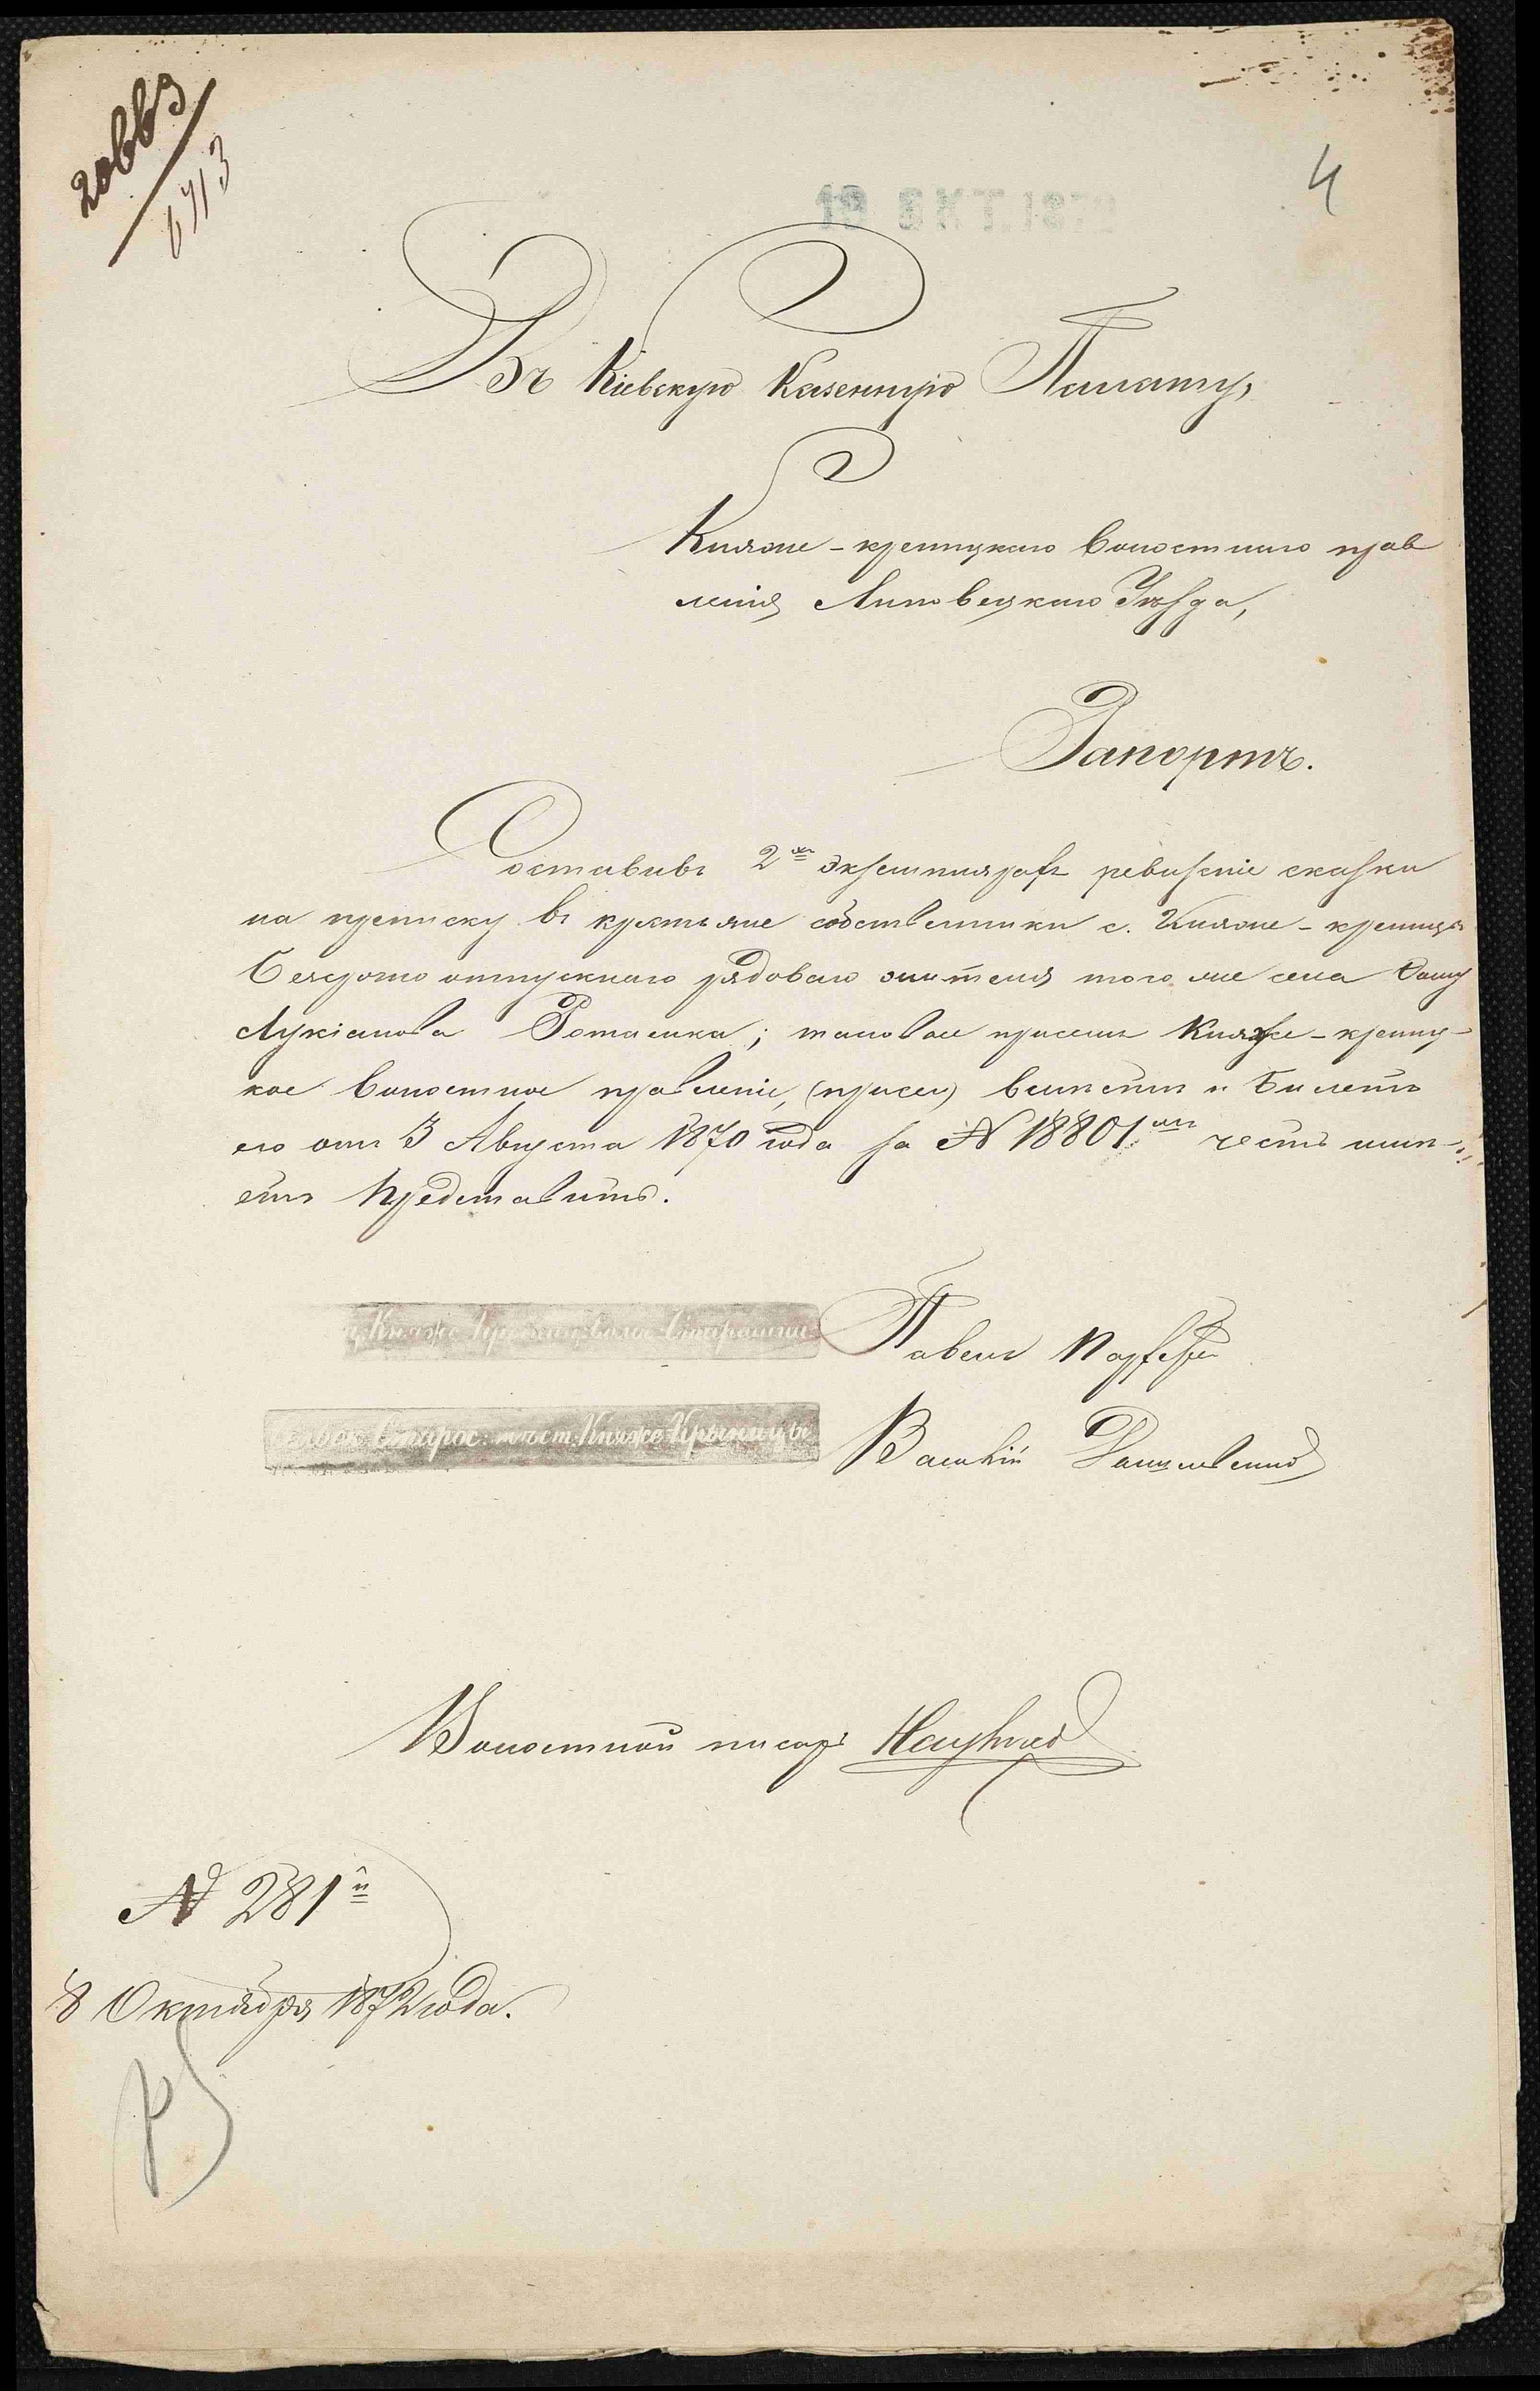 20663
6713
4
19 ОКТ.1872
Въ Кіевскую Казенную Палату,
Княже-креницкаго волостнаго прав
ленія Липовецкаго Уѣзда,
Рапортъ.
Составивъ 2хъ экземплярахъ ревизкіе сказки
на преписку въ крестьяне собственники с. Княже-креницы
безсрочно отпускнаго рядоваго жителя того же села
Лукіанова ; таковые Княже-крениц-
кое волостное правленіе, вмѣстѣ и билетъ
его отъ 3 Августа 1870 года за № 18801мъ честь имѣ-
етъ представить.
Княже Старшина
Старос: мѣст: Княже Крыницы
Павелъ
Василій
Волостной писарь
№ 281й
8 Октября 1872 года.